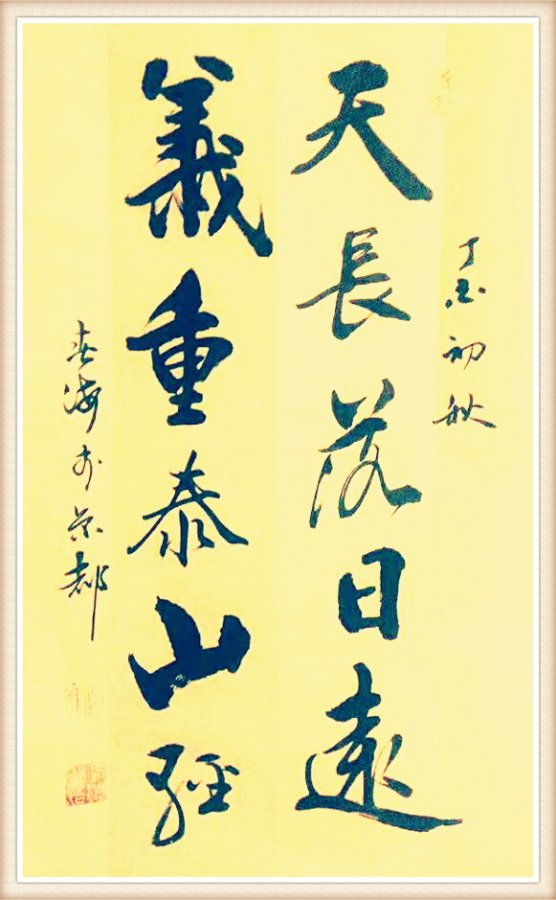 丁酉初秋
天長落日遠
義重泰山輕
春海於京都